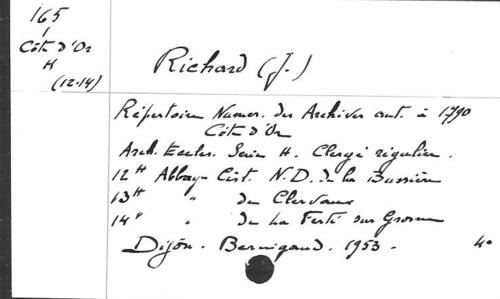 165
/
Côte d'Or
H
(12-14)
Richard (J.)
Répertoire Numer. des Archives ant. à 1790
Côte d'Or
Arch. Eccles. Serie H. Clergé régulier.
12 H Abbaye Cist. N.D. de la Bussière
13 H " de Clervaux
14 " " de La Ferté sur Grosne
Dijon. Bernigaud. 1953. 4°